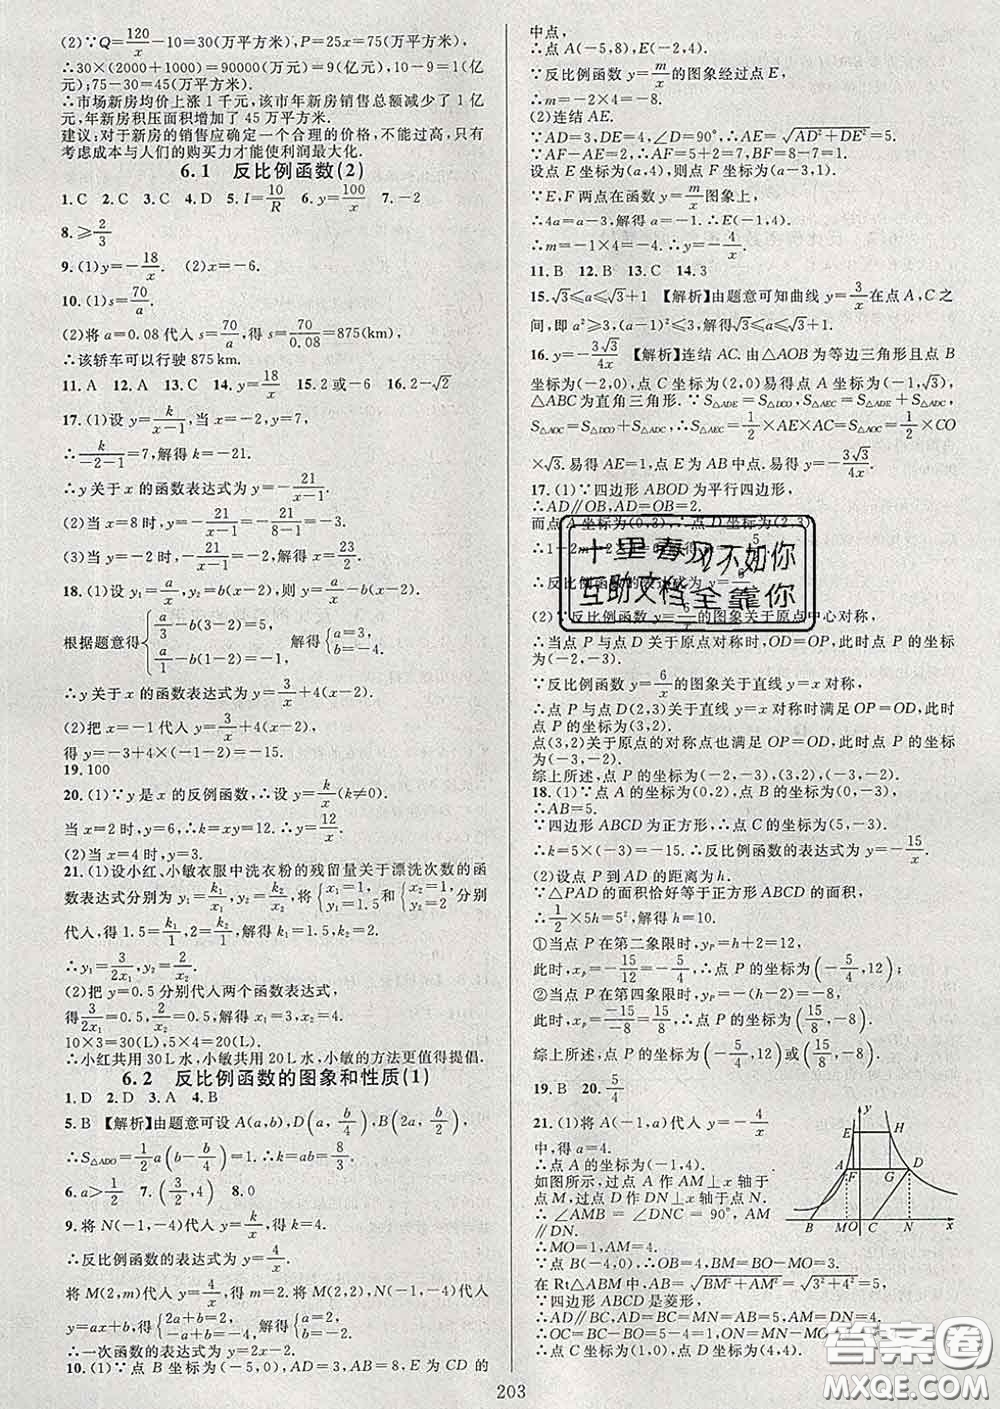 (2)∵Q=120/x-10=30(万平方米),P=25x=75(万平方米),
∴30×(2000+1000)=90000(万元)=9(亿元);
6×10=60(亿元);75-30=45(万平方米).
∴市场新房均价上涨 1 千元,该市年新房销售总额减少了 1 亿
元,年新房积压面积增加了 45 万平方米.
建议:对于新房的销售应确定一个合理的价格,不能过高,只有
考虑成本与人们的购买力才能使利润最大化.
6.1 反比例函数(2)
1.C 2.C 3.C 4.D 5.I=10/R 6.y=100/x 7.-2
8.≥2/3
9.(1)y=-18/x. (2)x=-6.
10.(1)s=70/a.
(2)将 a=0.08 代入 s=70/a,得 s=70/0.08=875(km),
∴该轿车可以行驶 875 km.
11.A 12.A 13.C 14.y=18/x 15.2 或-6 16.2-√2
17.(1)设 y=k/(x-1),当 x=-2 时,y=7,
∴k/(-2-1)=7,解得 k=-21.
∴y 关于 x 的函数表达式为 y=-21/(x-1).
(2)当 x=8 时,y=-21/(x-1)=-21/(8-1)=-3.
(3)当 y=-2 时,-21/(x-1)=-2,解得 x=23/2.
18.(1)设 y₁=a/x,y₂=b(x-2),则 y=a/x-b(x-2).
根据题意得{a/3-b(3-2)=5, a/1-b(1-2)=-1. 解得{a=3, b=-4.
∴y 关于 x 的函数表达式为 y=3/x+4(x-2).
(2)把 x=-1 代入 y=3/x+4(x-2),
得 y=-3+4×(-1-2)=-15.
19.100
20.(1)∵y 是 x 的反例函数,∴设 y=k/x(k≠0).
当 x=2 时,y=6,∴k=xy=12.∴y=12/x.
(2)当 x=4 时,y=3.
21.(1)设小红、小敏衣服中洗衣粉的残留量关于漂洗次数的函
数表达式分别为 y₁=k₁/x₁,y₂=k₂/x₂,将{x₁=1, y₁=1.5 和{x₂=1, y₂=2 分别
代入,得 1.5=k₁/1,2=k₂/1,解得 k₁=1.5,k₂=2.
∴y₁=3/2x₁,y₂=2/x₂.
(2)把 y=0.5 分别代入两个函数表达式,
得 3/2x₁=0.5,2/x₂=0.5.解得 x₁=3,x₂=4.
10×3=30(L),5×4=20(L).
∴小红共用 30 L 水,小敏共用 20 L 水,小敏的方法更值得提倡.
6.2 反比例函数的图象和性质(1)
1.D 2.D 3.A 4.B
5.B 【解析】由题意可设 A(a,b),D(a,b/4),B(2a,b/2),
∴S△ADO=1/2a(b-b/4)=1.∴k=ab=8/3.
6.a>1/2 7.(3/2,4) 8.0
9.将 N(-1,-4)代入 y=k/x,得 k=4.
∴反比例函数的表达式为 y=4/x.
将 M(2,m)代入 y=4/x,得 m=2.将 M(2,2),N(-1,-4)代入
y=ax+b,得{2a+b=2, -a+b=-4. 解得{a=2, b=-2.
∴一次函数的表达式为 y=2x-2.
10.(1)∵点 B 坐标为(-5,0),AD=3,AB=8,E 为 CD 的
中点,
∴点 A(-5,8),E(-2,4).
∵反比例函数 y=m/x的图象经过点 E,
∴m=-2×4=-8.
(2)连结 AE.
∵AD=3,DE=4,∠D=90°,∴AE=√(AD²+DE²)=5.
∵AF-AE=2,∴AF=5+2=7,BF=8-7=1.
设点 E 坐标为(a,4),则点 F 坐标为(a-3,1).
∵E,F 两点在函数 y=m/x图象上,
∴4a=a-3,解得 a=-1.∴E(-1,4).
∴m=-1×4=-4.∴y=-4/x.
11.B 12.B 13.C 14.3
15.√3≤a≤√3+1 【解析】由题意可知曲线 y=3/x在点 A,C 之
间,即 a²≥3,(a-1)²≤3,解得√3≤a≤√3+1.
16.y=-3√3/4x 【解析】连结 AC.由△AOB 为等边三角形且点 B
坐标为(-2,0),点 C 坐标为(2,0)易得点 A 坐标为(-1,√3),
△ABC 为直角三角形.∵S△ADE=S△DCO,S△AEC=S△ADE+S△ADC,
S△AOC=S△DCO+S△ADC,∴S△AEC=1/2×AE×AC=S△AOC=1/2×CO
×√3.易得 AE=1,点 E 为 AB 中点.易得 y=-3√3/4x.
17.(1)∵四边形 ABOD 为平行四边形,
∴AD∥OB,AD=OB=2.
而点 A 坐标为(0,3),∴点 D 坐标为(2,3).
∴反比例函数的表达式为 y=6/x.
(2)∵反比例函数 y=6/x的图象关于原点中心对称,
∴当点 P 与点 D 关于原点对称时,OD=OP,此时点 P 的坐标
为(-2,-3).
∵反比例函数 y=6/x的图象关于直线 y=x 对称,
∴点 P 与点 D(2,3)关于直线 y=x 对称时满足 OP=OD,此时
点 P 的坐标为(3,2).
点(3,2)关于原点的对称点也满足 OP=OD,此时点 P 的坐标
为(-3,-2).
综上所述,点 P 的坐标为(-2,-3),(3,2),(-3,-2).
18.(1)∵点 A 的坐标为(0,2),点 B 的坐标为(0,-3),
∴AB=5.
∵四边形 ABCD 为正方形,∴点 C 的坐标为(5,-3).
∴k=5×(-3)=-15.∴反比例函数的表达式为 y=-15/x.
(2)设点 P 到 AD 的距离为 h.
∵△PAD 的面积恰好等于正方形 ABCD 的面积,
∴1/2×5h=5²,解得 h=10.
①当点 P 在第二象限时,yP=h+2=12,
此时,xp=-15/12=-5/4,∴点 P 的坐标为(-5/4,12);
②当点 P 在第四象限时,yP=-(h-2)=-8,
此时,xp=-15/-8=15/8,∴点 P 的坐标为(15/8,-8).
综上所述,点 P 的坐标为(-5/4,12)或(15/8,-8).
19.B 20.5/4
21.(1)将 A(-1,a)代入 y=-4/x
中,得 a=4.
∴点 A 的坐标为(-1,4).
如图所示,过点 A 作 AM⊥x 轴于
点 M,过点 D 作 DN⊥x 轴于点 N.
∴∠AMB=∠DNC=90°,AM
∥DN.
∴MO=1,AM=4.
∵点 B(-4,0),∴OB=4,BM=BO-MO=3.
在 Rt△ABM 中,AB=√(BM²+AM²)=√(3²+4²)=5,
∵四边形 ABCD 是菱形,
∴AD∥BC,AD=BC=MN=AB=5,AM=DN=4.
∴OC=BC-BO=5-4=1,ON=MN-MO=5-1=4.
∴点 C 的坐标为(1,0),点 D 的坐标为(4,4).
y
E H
A F G D
B M O C N x
203
十里春风不如你
互助文档全靠你
答案圈
MXQE.COM